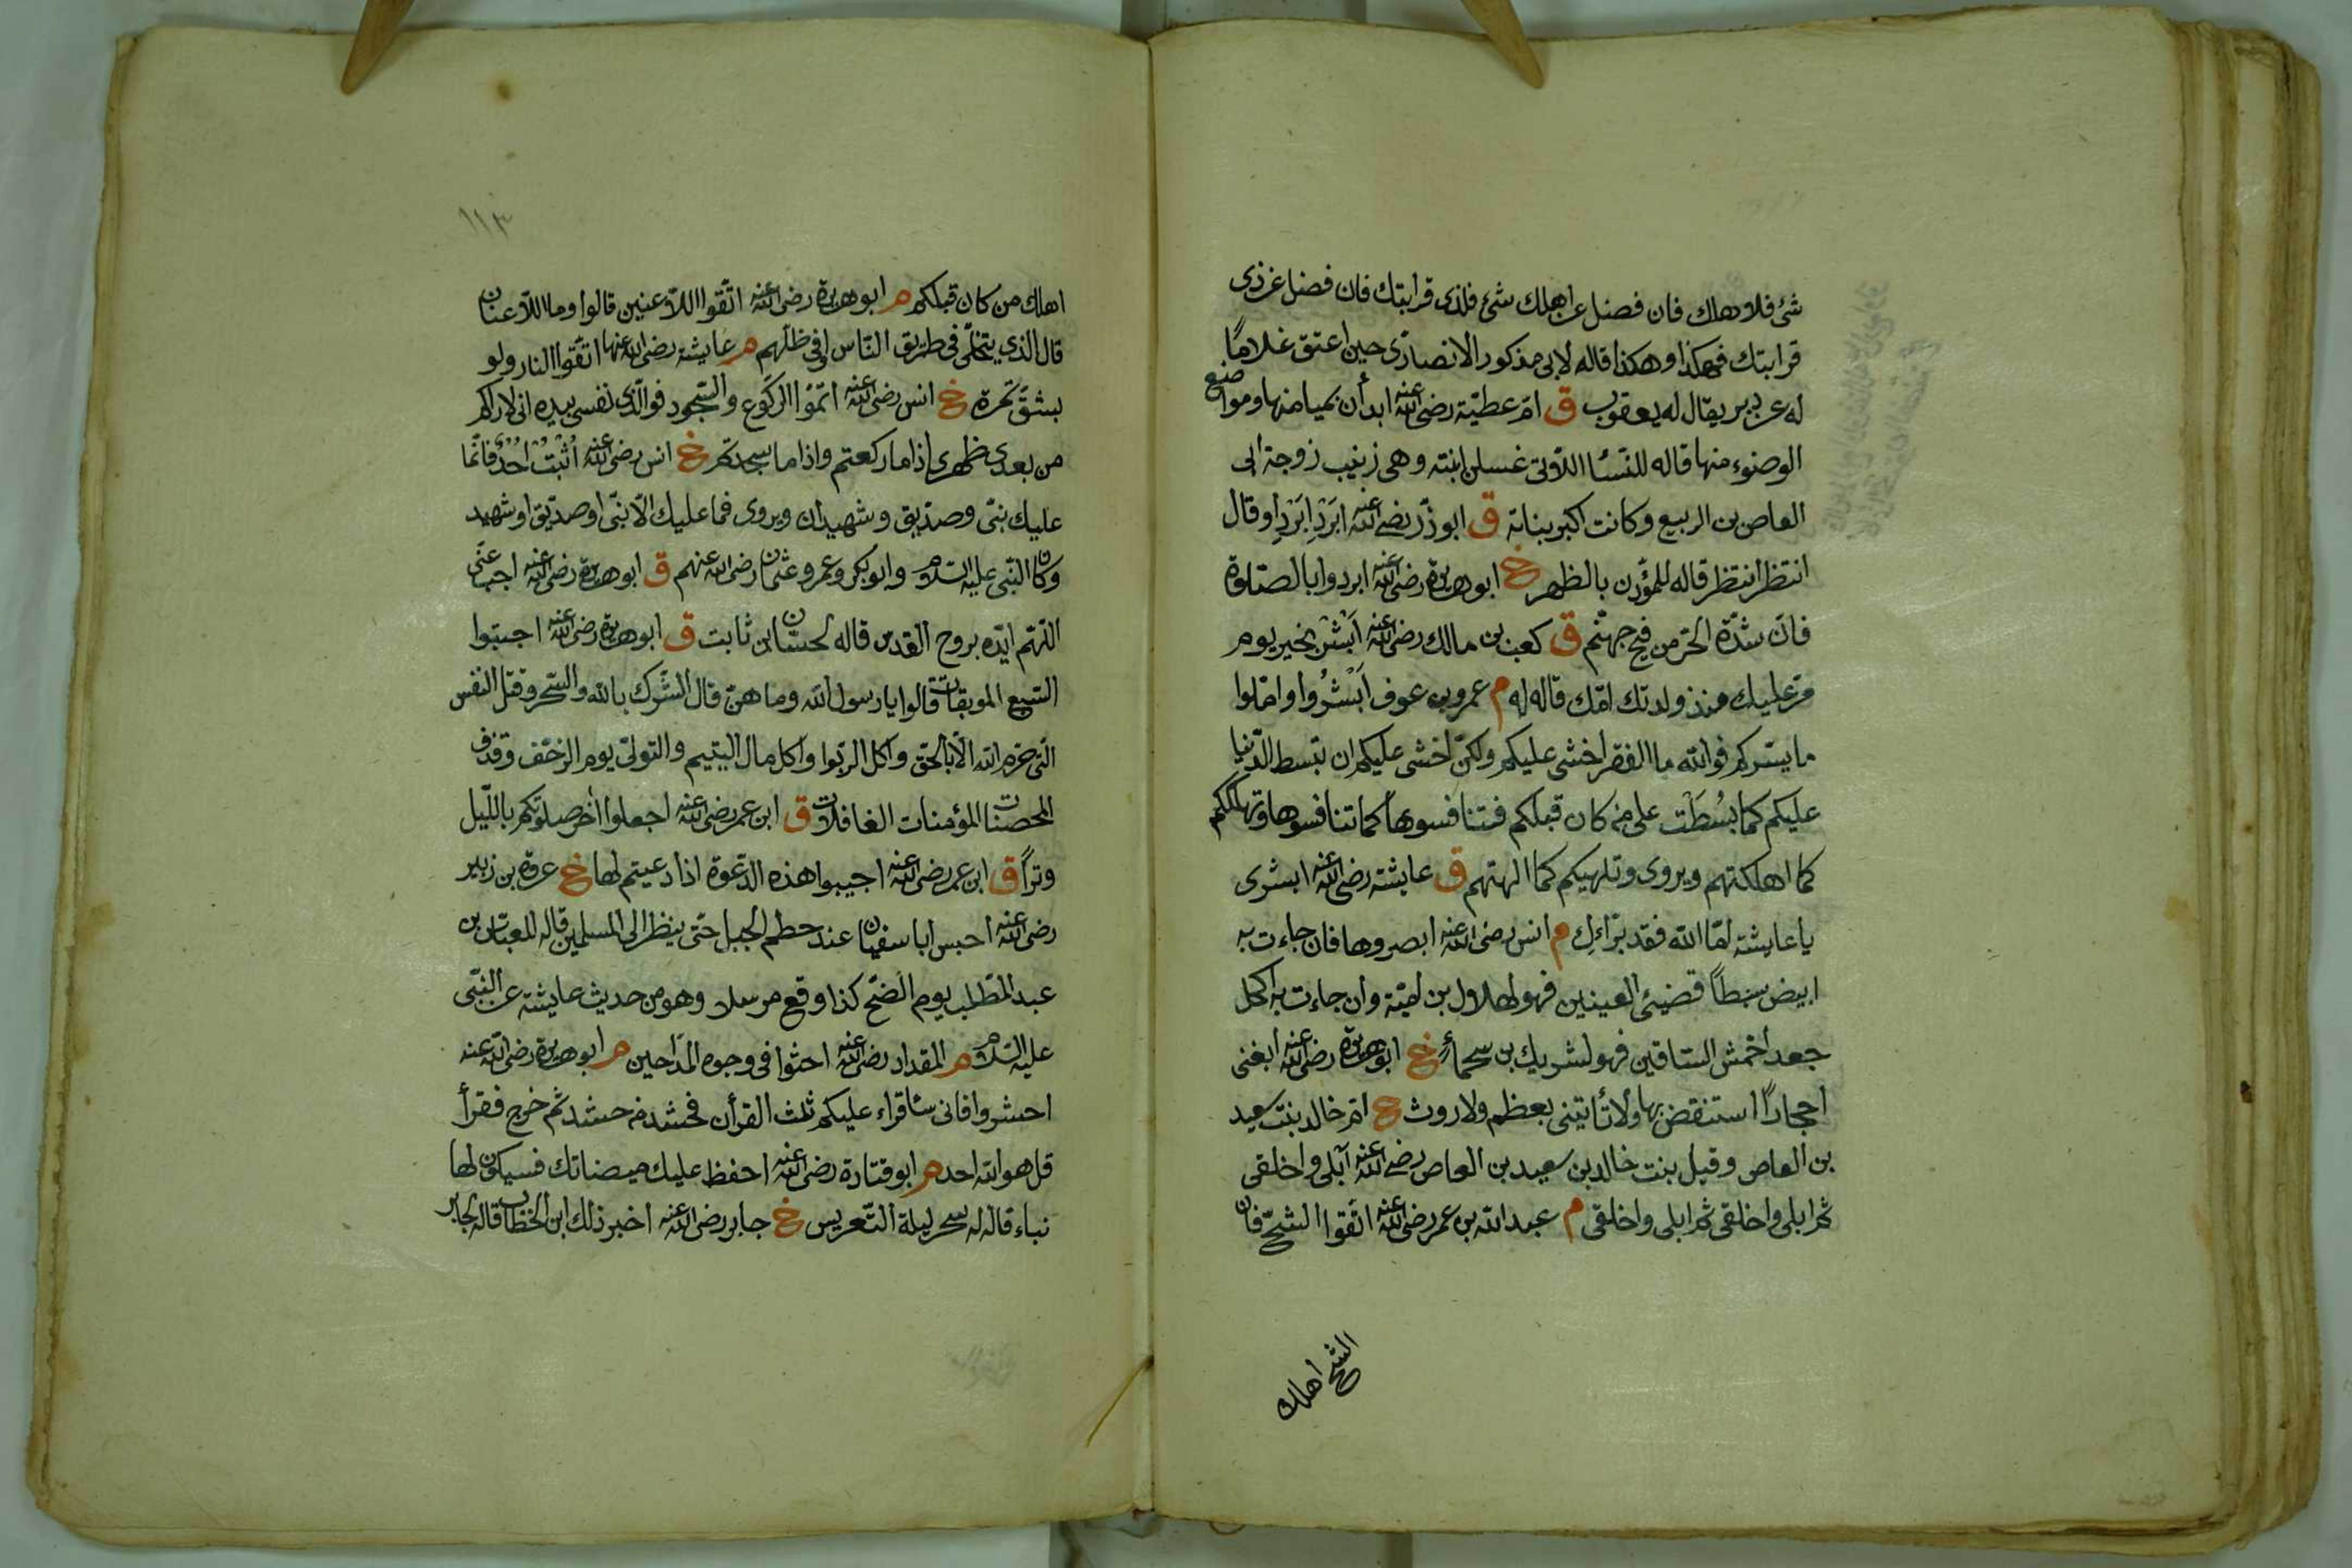 شئ فلاوهلك فان فضل عن اهلك شئ فلذى قرابتك فان فضل عن ذى
قرابتك فهكذا وهكذا قاله لابى مذكور الانصارى حين اعتق غلاما
له عن دبر يقال له يعقوب ق ام عطية رضى الله عنه ابدأن بميامنها ومواضع
الوضوء منها قاله للنسا اللاتى غسلن ابنته وهى زينب زوجة ابى
العاص بن الربيع وكانت اكبر بناته ق ابو ذر رضى الله عنه ابرد ابرد او قال
انتظر انتظر قاله للمؤذن بالظهر خ ابو هريرة رضى الله عنه ابردوا بالصلوة
فان شدة الحر من فيح جهنم ق كعب بن مالك رضى الله عنه ابشر بخير يوم
مر عليك منذ ولدتك امك قاله له م عمرو بن عوف ابشروا واملوا
ما يسركم فوالله ما الفقر اخشى عليكم ولكن اخشى عليكم ان تبسط الدنيا
عليكم كما بسطت على من كان قبلكم فتنافسوها كما تنافسوها وتهلككم
كما اهلكتهم ويروى وتلهيكم كما الهتهم ق عايشة رضى الله عنه ابشرى
يا عايشة اما الله فقد براءك م انس رضى الله عنه ابصروها فان جاءت به
ابيض سبطا قضيئ العينين فهو لهلال بن امية وان جاءت به اكحل
جعدا خمش الساقين فهو لشريك بن سحماء خ ابو هريرة رضى الله عنه ابغنى
احجارا استنقض بها ولا تأتينى بعظم ولا روث خ ام خالد بنت سعيد
بن العاص وقيل بنت خالد بن سعيد بن العاص رضى الله عنه ابلى واخلقى
ثم ابلى واخلقى ثم ابلى واخلقى م عبد الله بن عمر رضى الله عنه اتقوا الشح فان
الشح اهلك
١١٣
اهلك من كان قبلكم م ابو هريرة رضى الله عنه اتقوا اللاعنين قالوا وما اللاعنان
قال الذى يتخلى فى طريق الناس او فى ظلهم م عايشة رضى الله عنها اتقوا النار ولو
بشق تمرة خ انس رضى الله عنه اتموا الركوع والسجود فوالذى نفسى بيده انى لاراكم
من بعدى ظهرى اذا ما ركعتم واذا ما سجدتم خ انس رضى الله عنه اثبت احد فانما
عليك نبى وصديق وشهيدان ويروى فما عليك الا نبى او صديق او شهيد
وكان النبى عليه السلام وابو بكر وعمر وعثمان رضى الله عنهم ق ابو هريرة رضى الله عنه اجب عنى
اللهم ايده بروح القدس قاله لحسان ابن ثابت ق ابو هريرة رضى الله عنه اجتنبوا
السبع الموبقات قالوا يا رسول الله وما هن قال الشرك بالله والسحر وقتل النفس
التى حرم الله الا بالحق واكل الربوا واكل مال اليتيم والتولى يوم الزحف وقذف
المحصنات المؤمنات الغافلات ق ابن عمر رضى الله عنه اجعلوا آخر صلوتكم بالليل
وترا ق ابن عمر رضى الله عنه اجيبوا هذه الدعوة اذا دعيتم لها خ عروة بن زبير
رضى الله عنه احبس ابا سفيان عند حطم الجبل حتى ينظر الى المسلمين قاله للعباس بن
عبد المطلب يوم الفتح كذا وقع مرسلا وهو من حديث عايشة عن النبى
عليه السلام م المقداد رضى الله عنه احثوا فى وجوه المداحين م ابو هريرة رضى الله عنه
احشروا فانى ساقراء عليكم ثلث القرآن فحشد من حشد ثم خرج فقرأ
قل هو الله احد م ابو قتادة رضى الله عنه احفظ عليك ميضاتك فسيكون لها
نباء قاله له سحر ليلة التعريس خ جابر رضى الله عنه اخبر ذلك ابن الخطاب قاله لجابر